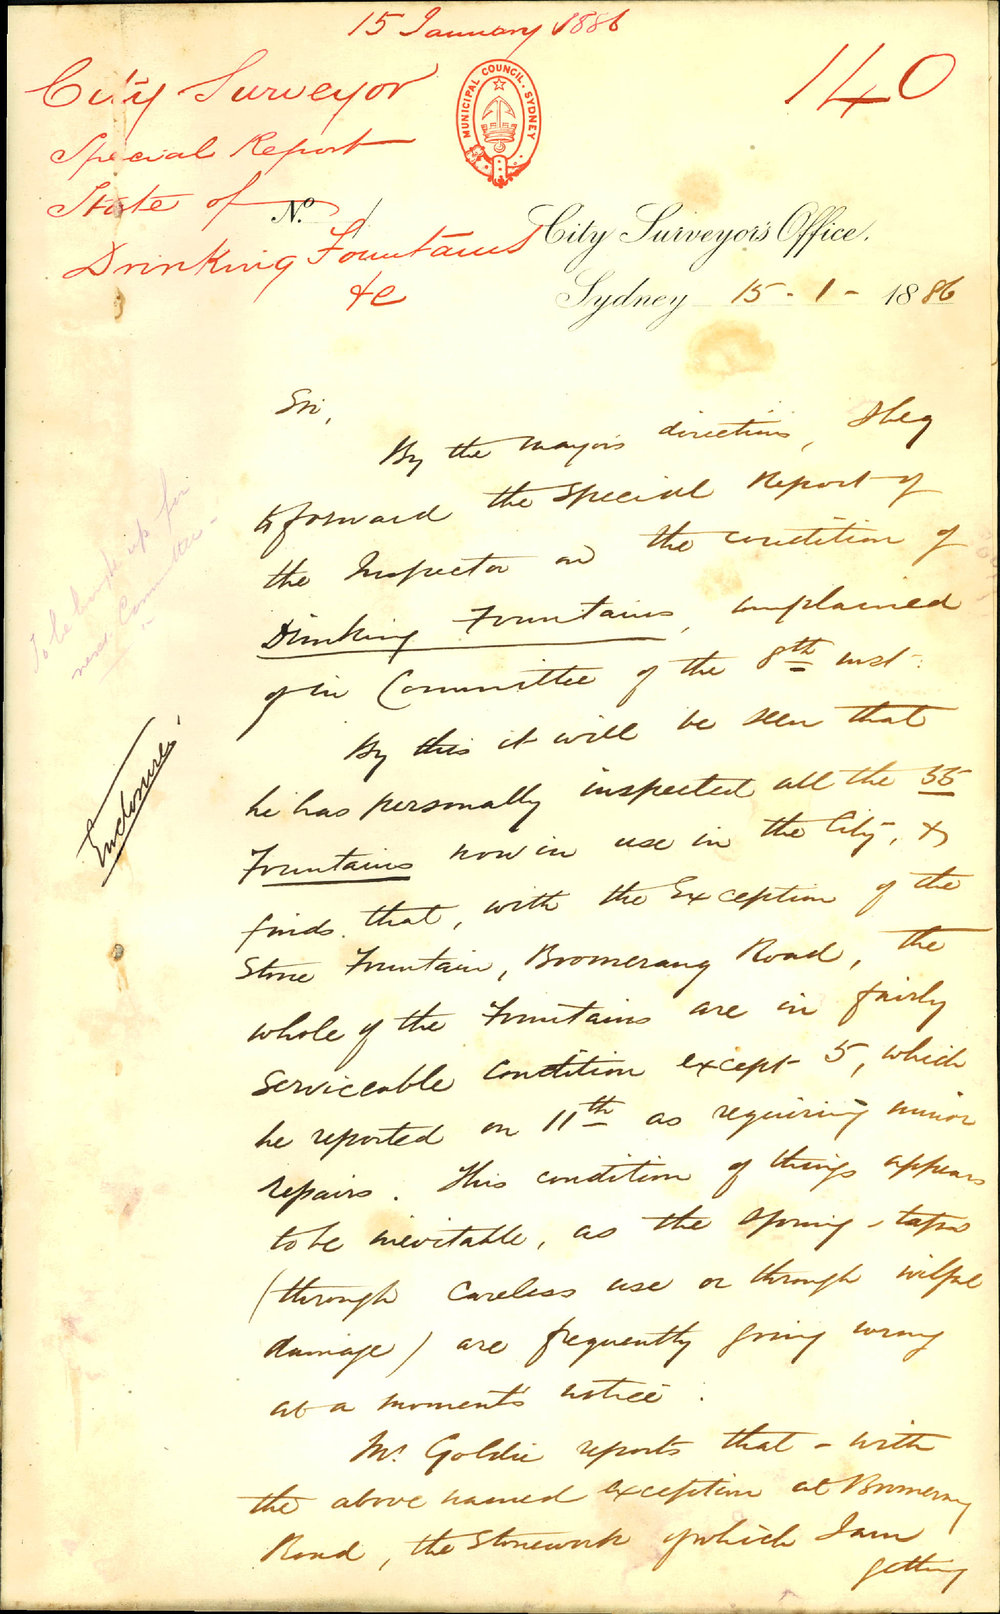 15 January 1886
140
City Surveyor
Special Report
State of
Drinking Fountains
&c
MUNICIPAL COUNCIL. SYDNEY
No.
City Surveyor's Office.
Sydney 15-1-1886
Sir,
By the Mayor's directions, I beg
to forward the Special Report of
the Inspector on the condition of
Drinking Fountains, complained
of in Committee of the 8th inst.
To be brought up for
next Committee
By this it will be seen that
he has personally inspected all the 55
Enclosures
Fountains now in use in the City, &
finds that, with the Exception of the
Stone Fountain, Boomerang Road, the
whole of the Fountains are in fairly
serviceable condition except 5, which
he reported on 11th as requiring minor
repairs. This condition of things appears
to be inevitable, as the spring-taps
(through careless use or through wilful
damage) are frequently going wrong
at a moment's notice.
Mr. Goldie reports that - with
the above named exception at Boomerang
Road, the Stonework of which I am
getting